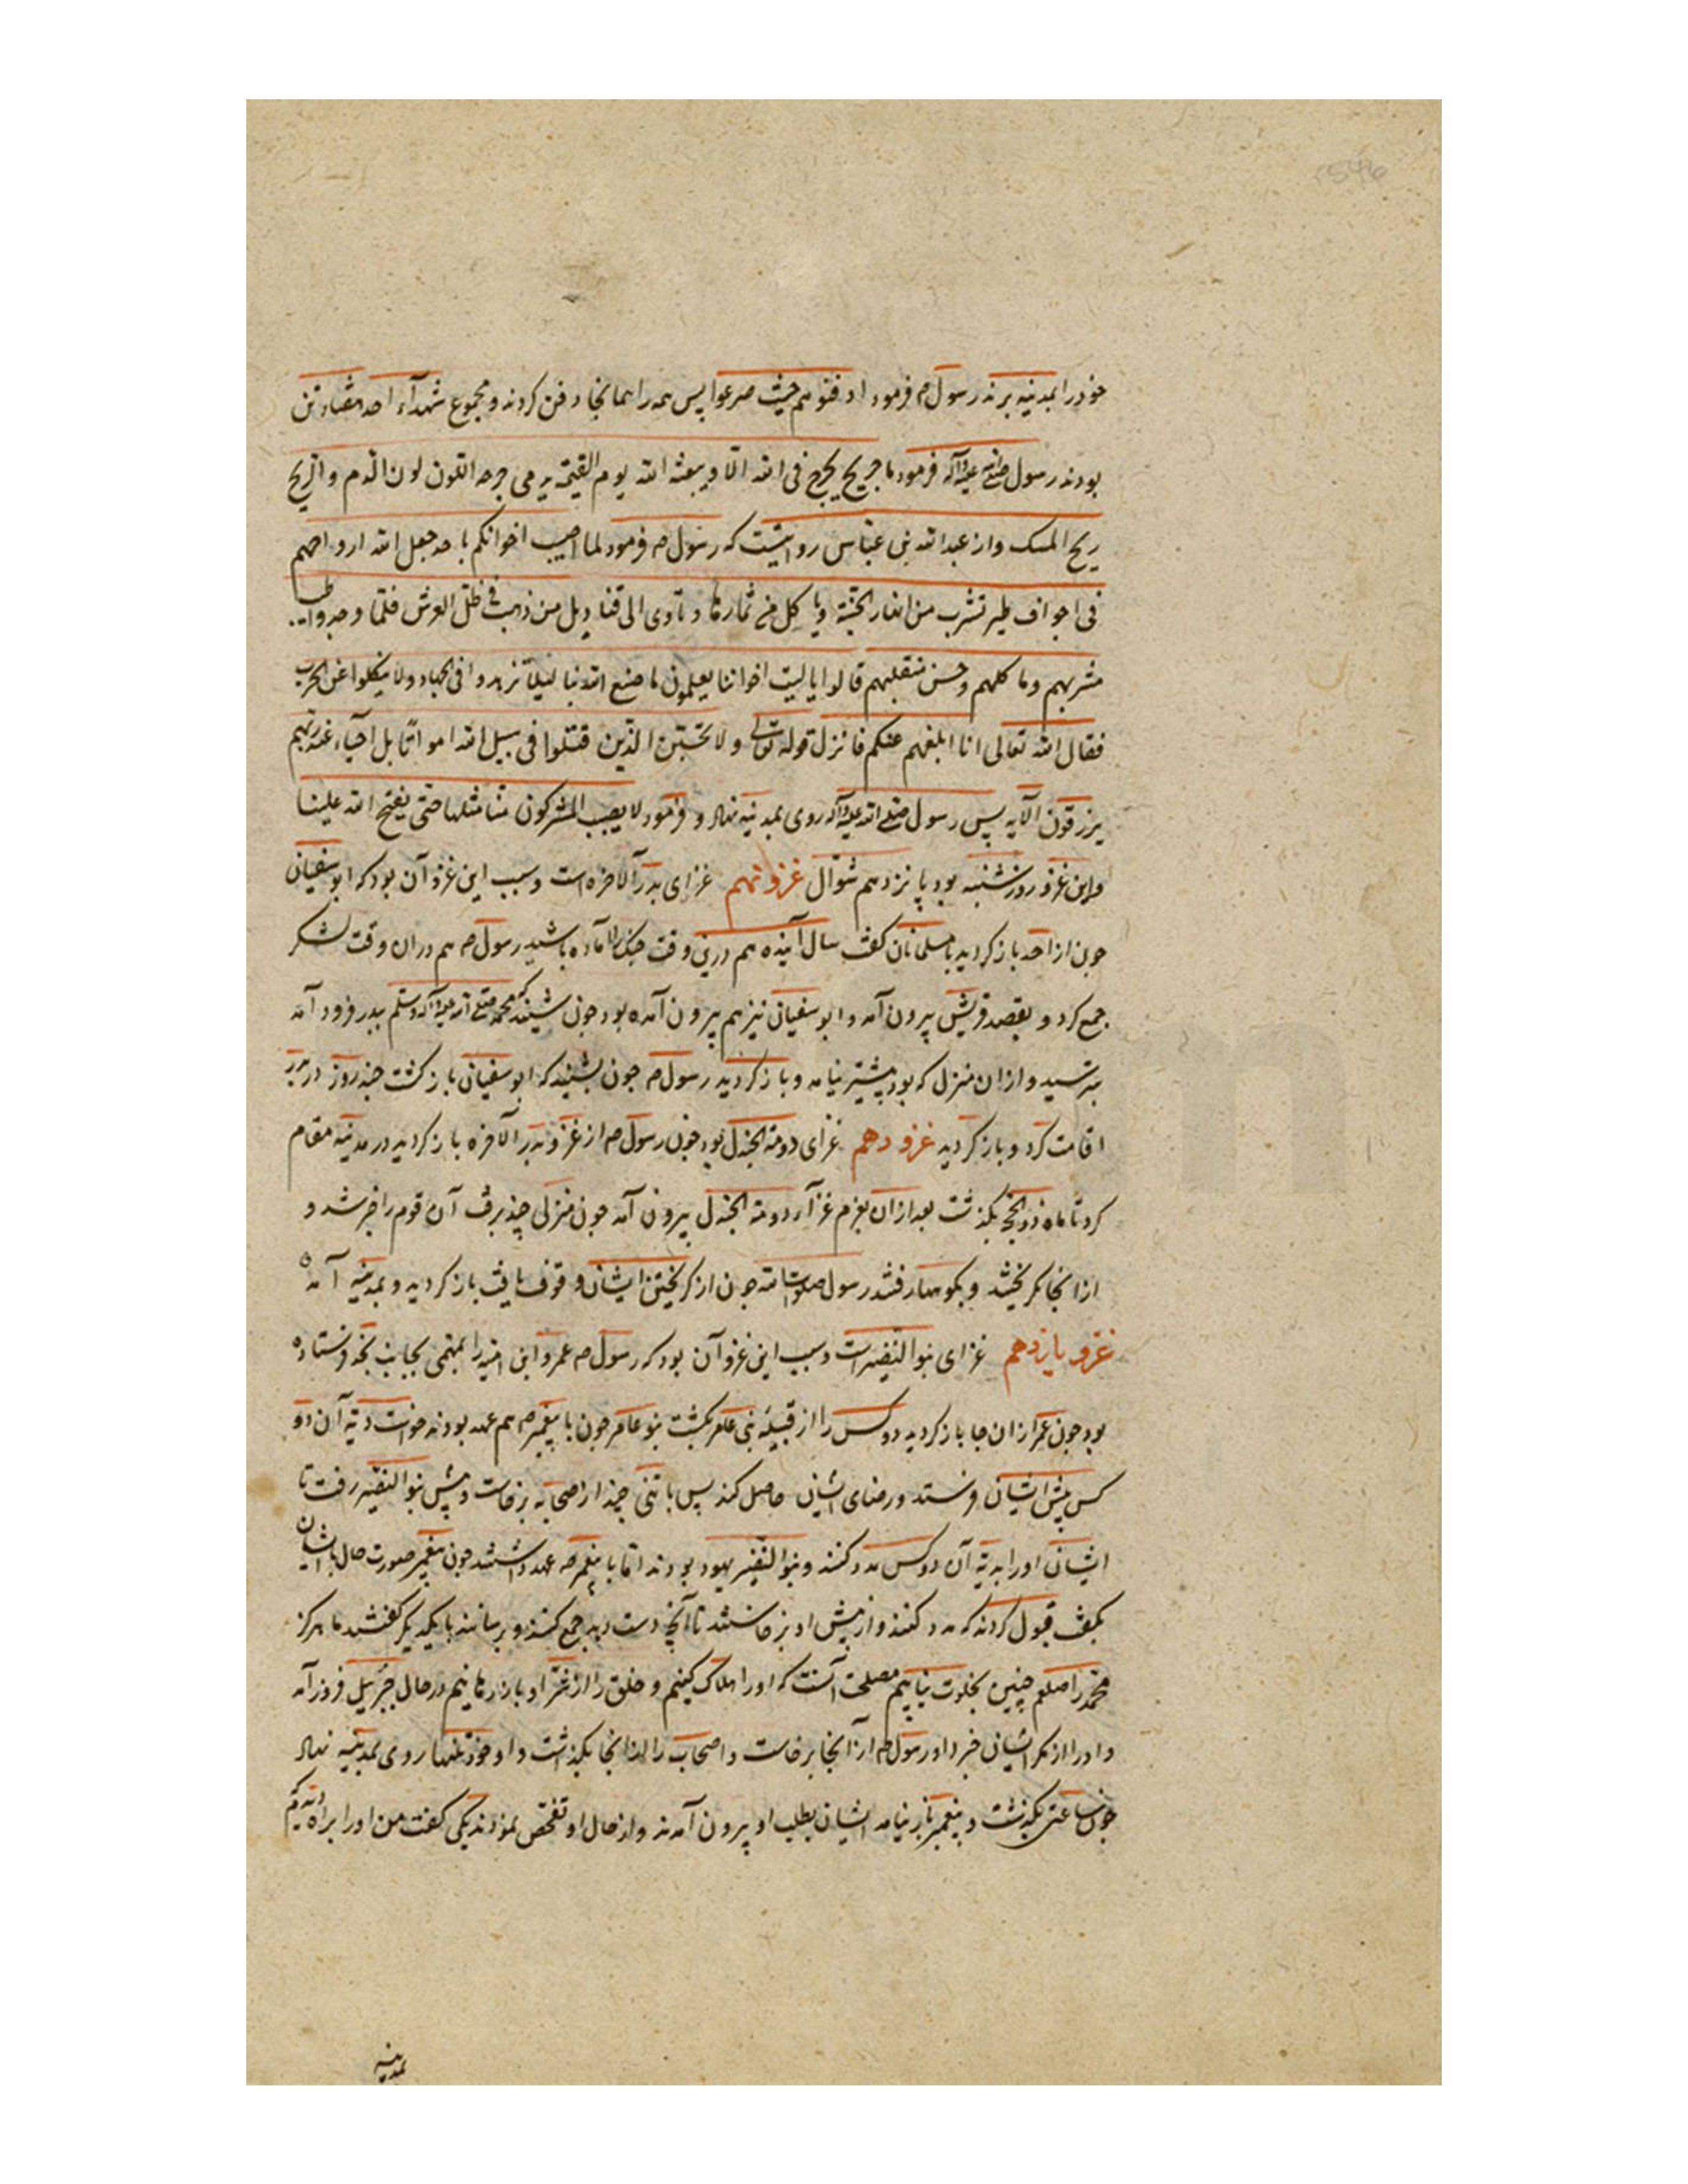 خود را بمدینه برند رسول ص فرمود ادفنوهم حیث صرعوا پس همه را همانجا دفن کردند و مجموع شهدآء احد هفتاد تن
بودند رسول صلی الله علیه و آله فرمود ما جریح یجرح فی الله الّا و یبعثه الله یوم القیٰمة یدمی جرحه اللون لون الدم و الریح
ریح المسک و از عبدالله بن عبّاس روایتست که رسول ص فرمود لما اصیب اخوانکم باحد جعل الله ارواحهم
فی اجواف طیر تشرب من انهار الجنّة و یاکل من ثمارها و تاوی الی قنادیل من ذهب فی ظلّ العرش فلمّا وجدوا طیب
مشربهم و ماکلهم و حسن منقلبهم قالوا یا لیت اخواننا یعلمون ما صنع الله بنا لیلّا یزهدوا فی الجهاد و لا ینکلوا عن الحرب
فقال الله تعالی انا ابلغهم عنکم فانزل قوله تعالی و لا تحسبن الذین قتلوا فی سبیل الله امواتًا بل احیآء عند ربهم
یرزقون الآیه پس رسول صلی الله علیه و آله روی بمدینه نهاد و فرمود لا یصیب المشرکون منّا مثلها حتی یفتح الله علینا
و این غزو روز شنبه بود پانزدهم شوّال غزو نهم غزای بدر الآخره است و سبب این غزو آن بود که ابوسفیان
چون از احد باز کردید با مسلمانان کفت سال آینده هم درین وقت جنک را آماده باشید رسول ص هم دران وقت لشکر
جمع کرد و بقصد قریش بیرون آمد و ابوسفیان نیز هم بیرون آمده بود چون شنید که محمد صلی الله علیه و آله و سلم ببدر فرود آمد
بترسید و از ان منزل که بود پیشتر نیامد و باز کردید رسول ص چون بشنید که ابوسفیان باز کشت چند روز در بدر
اقامت کرد و باز کردید غزو دهم غزای دومة الجندل بود چون رسول ص از غزو بدر الآخره باز کردید در مدینه مقام
کرد تا ماه ذوالحجّه بکذشت بعد از ان بعزم غزآء دومة الجندل بیرون آمد چون منزلی چند برفت آن قوم را خبر شد و
از انجا بکریختند و بکوهسار رفتند رسول صلوات الله چون از کریختن ایشان وقوف یافت باز کردید و بمدینه آمد
غزو یازدهم غزای بنوالنضیر است و سبب این غزو آن بود که رسول ص عمرو ابن امیه را بمهمی بجانب نجد فرستاده
بود چون عمر از ان جا باز کردید دو کس را از قبیلۀ بنی عامر بکشت بنو عامر چون با پیغمبر ص هم عهد بودند خواست دیۀ آن دو
کس پیش ایشان فرستد و رضای ایشان حاصل کند پس با تنی چند از صحابه برخاست و پیش بنوالنضیر رفت تا
ایشان او را بدیۀ آن دو کس مدد کنند و بنوالنضیر یهود بودند امّا با پیغمبر ص عهد داشتند چون پیغمبر صورت حال با ایشان
بکفت قبول کردند که مدد کنند و از پیش او برخاستند تا آنچه دست دهد جمع کنند و برسانند با یکدیکر کفتند ما هرکز
محمّد را صلعم چنین بخلوت نیابیم مصلحت آنست که او را هلاک کنیم و خلق را از غزّ او باز رهانیم در حال جبرئیل فرود آمد
و او را از مکر ایشان خبر داد رسول ص از آنجا برخاست و اصحاب را هم انجا بکذاشت و او خود تنها روی بمدینه نهاد
چون ساعتی بکذشت و پیغمبر باز نیامد ایشان بطلب او بیرون آمدند و از حال او تفحّص نمودند یکی کفت من او را براه دیدم که
بمدینه